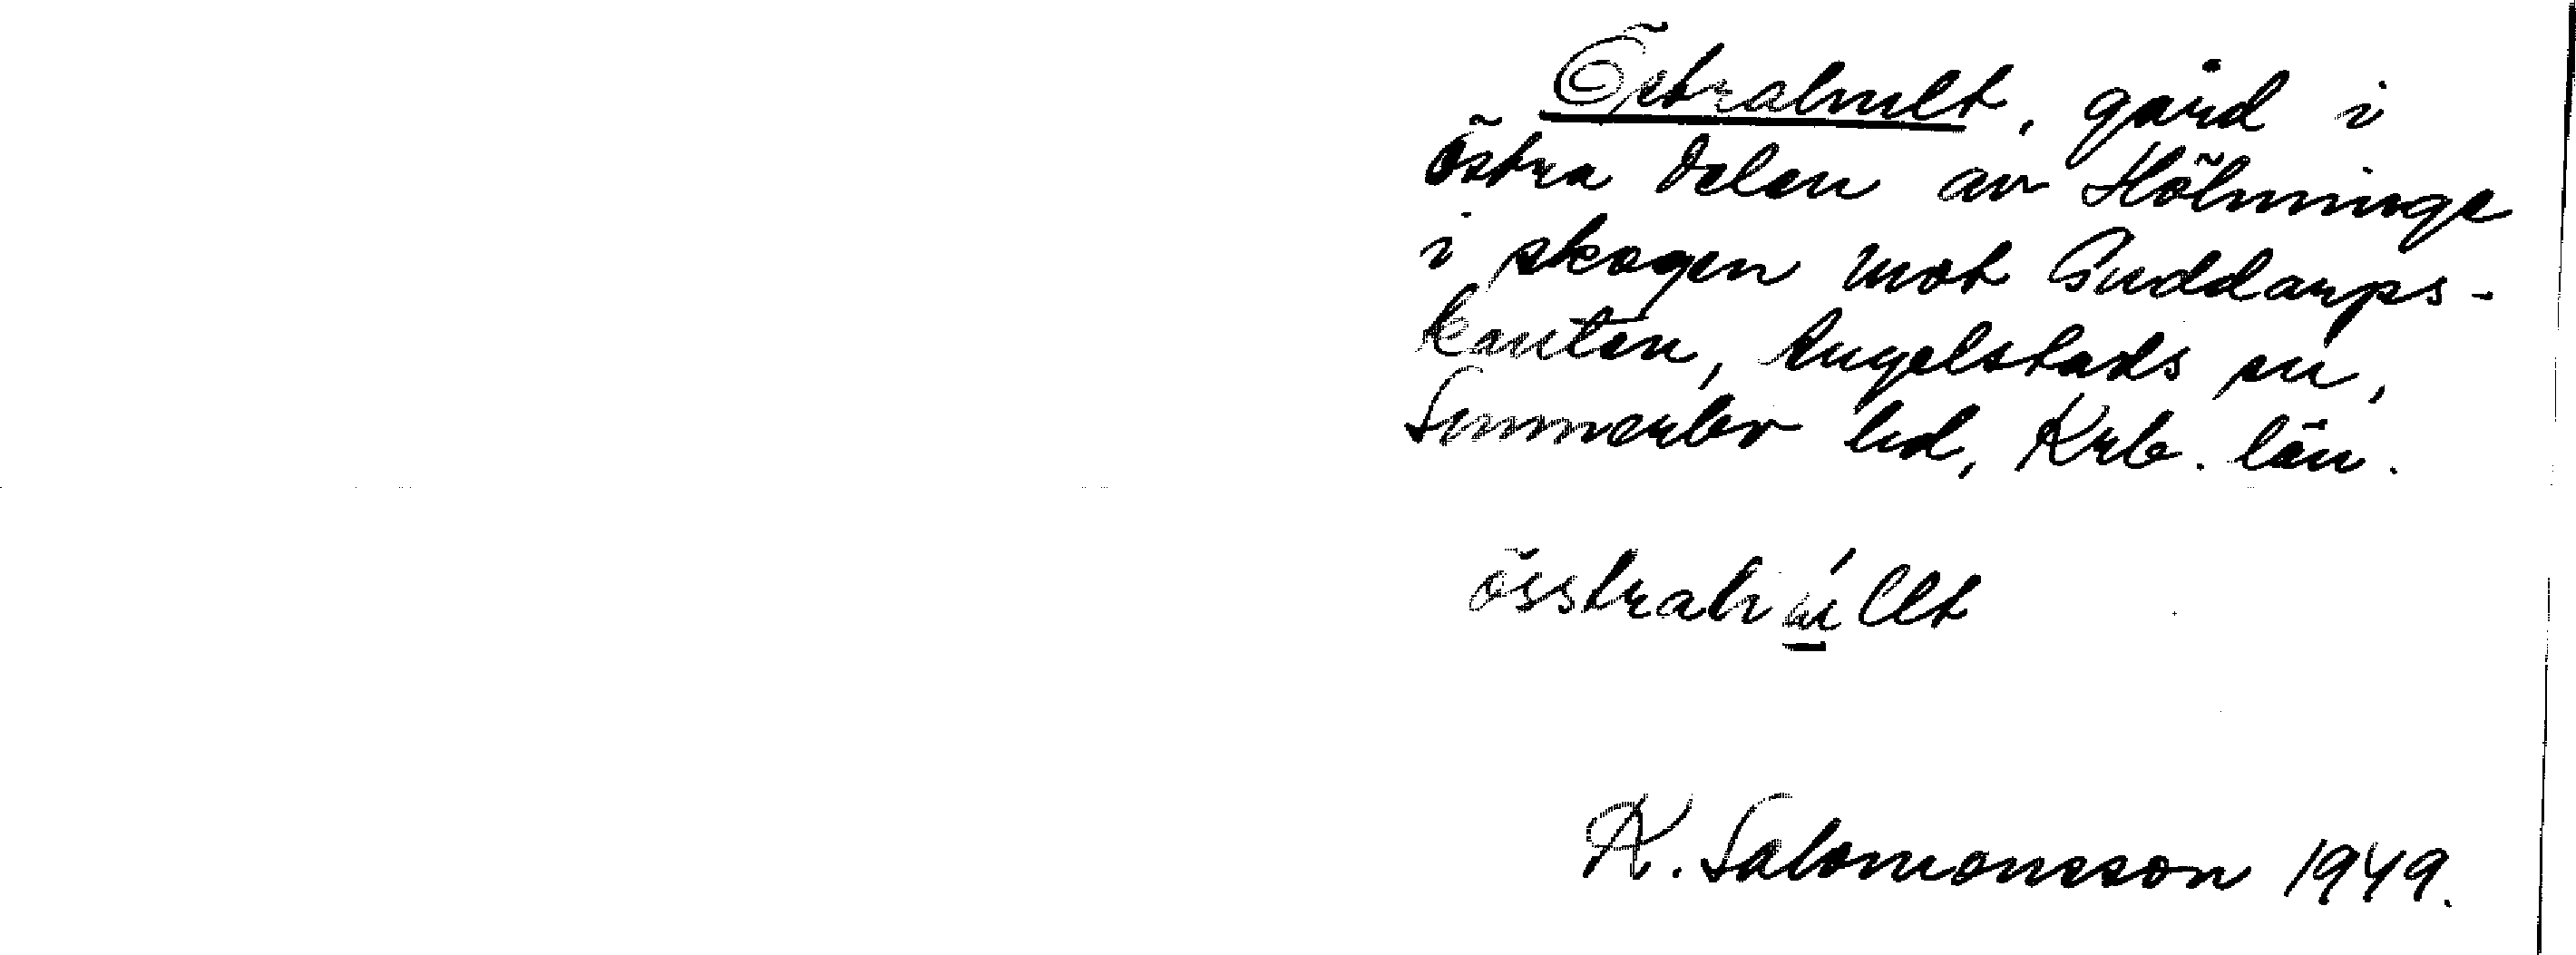 Östrahult, gård i
östra delen av Hölminge
i skogen mot Guddarps-
kanten, Angelstads sn,
Sunnerbo hd, Krb. län.
össtrahúllt
K. Salomonsson 1949.